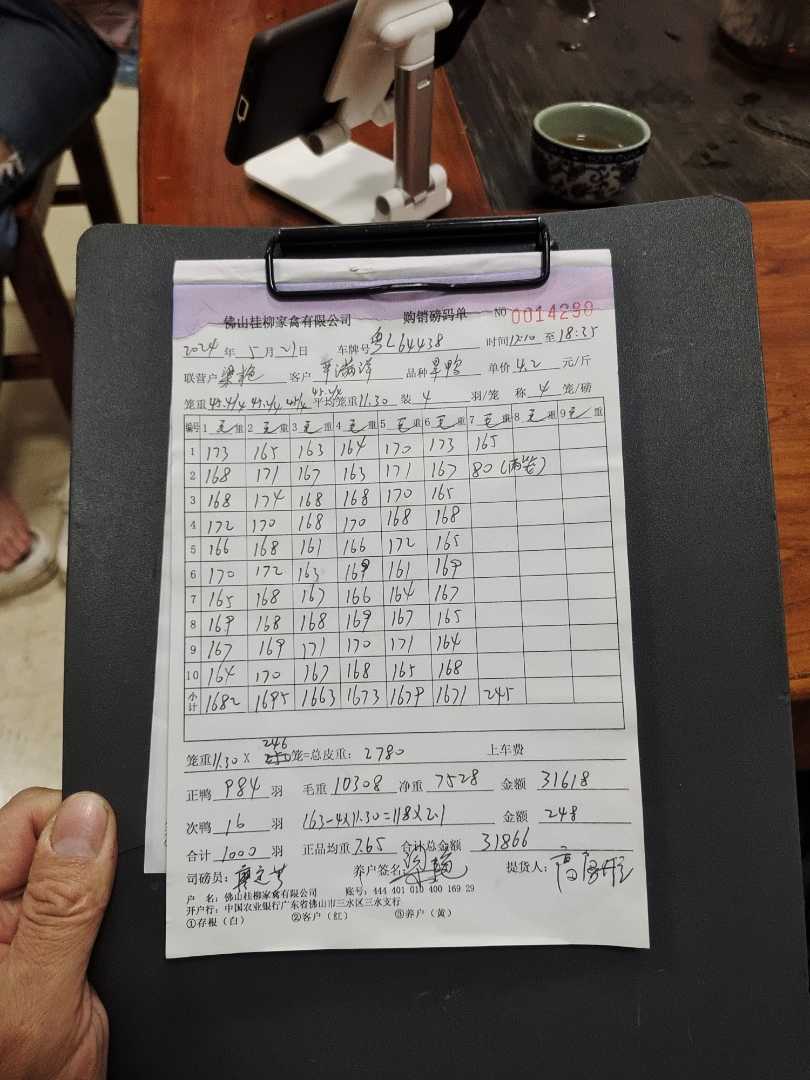 佛山桂柳家禽有限公司 购销磅码单 NO 0014290
2024 年 5 月 21 日 车牌号 粤L64438 时间 17:10 至 18:35
联营户 梁艳 客户 品种 旱鸭 单价 4.2 元/斤
笼重 平均笼重 11.30 装 4 羽/笼 称 4 笼/磅
编号 1 毛重 2 毛重 3 毛重 4 毛重 5 毛重 6 毛重 7 毛重 8 毛重 9 毛重
1 173 165 163 164 170 173 165
2 168 171 167 163 171 167 80 (两笼)
3 168 174 168 168 170 165
4 172 170 168 170 168 168
5 166 168 161 166 172 165
6 170 172 163 169 161 169
7 165 168 167 166 164 167
8 169 168 168 169 167 165
9 167 169 171 170 171 164
10 164 170 167 168 165 168
小计 1682 1695 1663 1673 1679 1671 245
246
笼重 11.30 X 250 笼=总皮重: 2780 上车费
正鸭 984 羽 毛重 10308 净重 7528 金额 31618
次鸭 16 羽 163-4×11.30=118×2.1 金额 248
合计 1000 羽 正品均重 7.65 合计总金额 31866
司磅员: 养户签名: 梁艳 提货人:
户 名: 佛山桂柳家禽有限公司 账号: 444 401 010 400 169 29
开户行: 中国农业银行广东省佛山市三水区三水支行
①存根(白) ②客户(红) ③养户(黄)